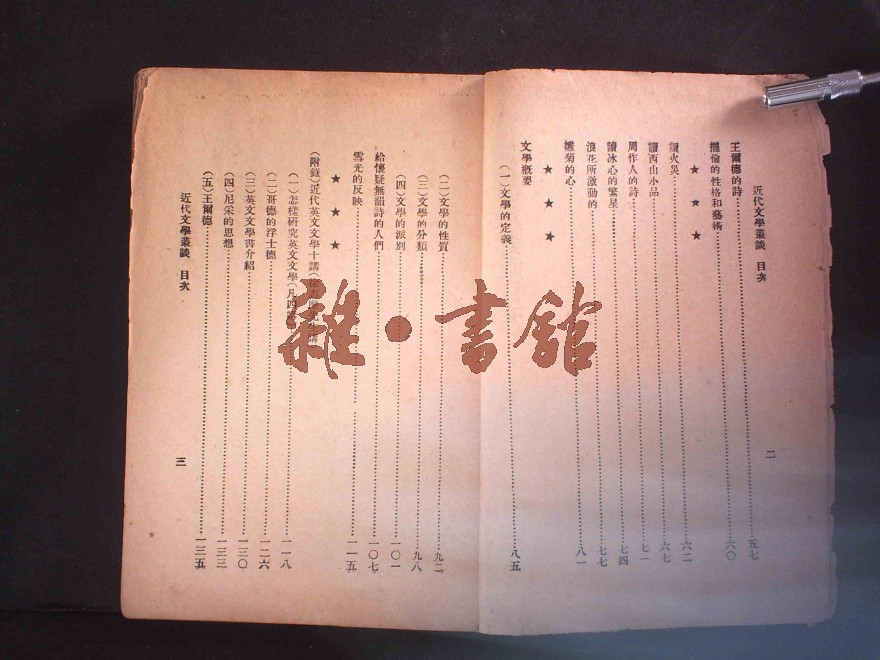 近代文學叢談 目次
二
王爾德的詩……五七
擺倫的性格和藝術……六〇
★ ★ ★
讀火災……六二
讀西山小品……六七
周作人的詩……七一
讀冰心的繁星……七四
浪花所激動的……七七
雛菊的心……八一
★ ★ ★
文學概要
(一)文學的定義……八五
(二)文學的性質……九二
(三)文學的分類……九八
(四)文學的派別……一〇一
給懷疑無韻詩的人們……一〇七
雪光的反映……一一五
★ ★ ★
(附錄)近代英文文學十講
(一)怎樣研究英文文學(凡四
……一一八
(二)哥德的浮士德……一二六
(三)英文文學書介紹……一三〇
(四)尼采的思想……一三三
(五)王爾德……一三五
近代文學叢談 目次
三
雜·書館